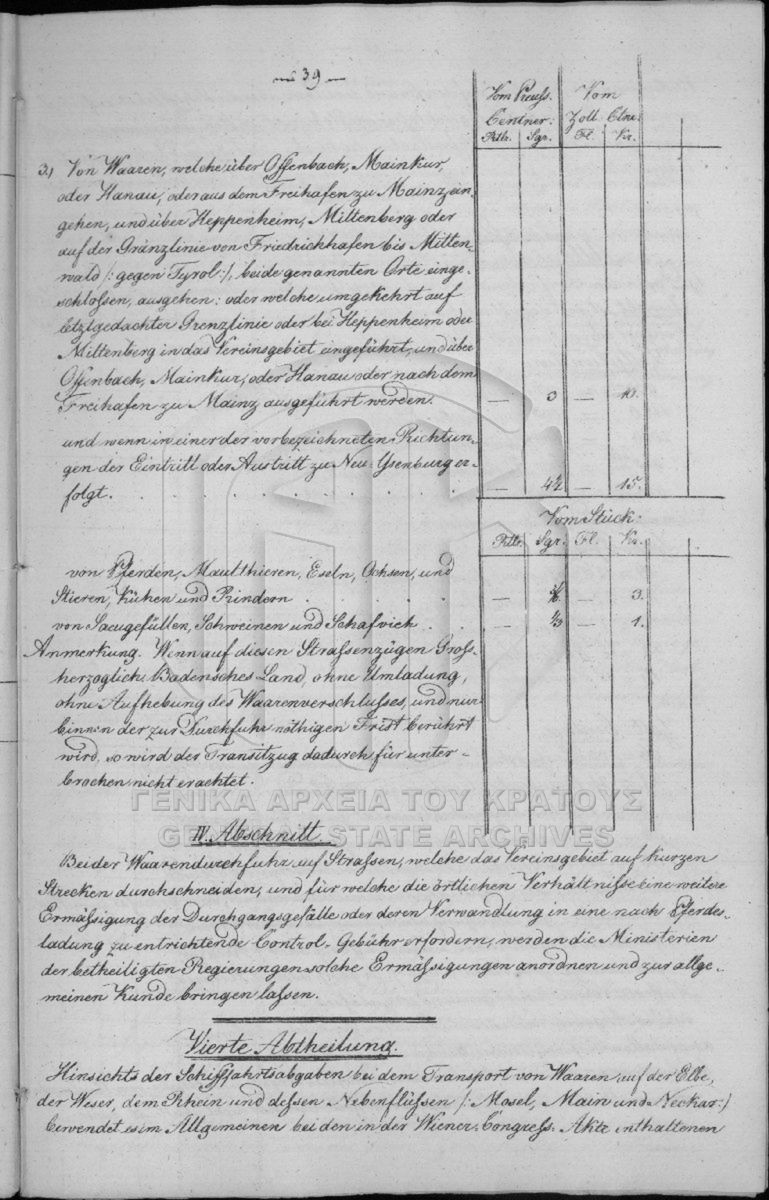 — 39 —
Vom Preuss. Vom
Centner: Zoll-Ctnr:
Rtlr. Sgr. Fl. Kr.
3.) Von Waaren, welche über Offenbach, Mainkur,
oder Hanau, oder aus dem Freihafen zu Mainz ein-
gehen, und über Heppenheim, Miltenberg oder
auf der Gränzlinie von Friedrichhafen bis Mitten-
wald /: gegen Tyrol :/, beide genannten Orte einge-
schlossen, ausgehen: oder welche umgekehrt auf
letztgedachter Grenzlinie oder bei Heppenheim oder
Miltenberg in das Vereinsgebiet eingeführt, und über
Offenbach, Mainkur, oder Hanau oder nach dem
Freihafen zu Mainz ausgeführt werden. — 3 — 10.
und wenn in einer der vorbezeichneten Richtun-
gen der Eintritt oder Austritt zu Neu-Ysenburg er-
folgt. . . . . . . . . — 4½ — 15.
Vom Stück:
Rtlr. Sgr. Fl. Kr.
von Pferden, Maulthieren, Eseln, Ochsen, und
Stieren, Kühen und Rindern . . . . — — 3.
von Saeugefüllen, Schweinen und Schafvieh . . — ⅓ — 1.
Anmerkung. Wenn auf diesen Strassenzügen Gross-
herzoglich Badensches Land, ohne Umladung,
ohne Aufhebung des Waarenverschlusses, und nur
binnen der zur Durchfuhr nöthigen Frist berührt
wird, so wird der Transitzug dadurch für unter-
brochen nicht erachtet.
ΓΕΝΙΚΑ ΑΡΧΕΙΑ ΤΟΥ ΚΡΑΤΟΥΣ
GENERAL STATE ARCHIVES
IV. Abschnitt.
Bei der Waarendurchfuhr auf Strassen, welche das Vereinsgebiet auf kurzen
Strecken durchschneiden, und für welche die örtlichen Verhältnisse eine weitere
Ermässigung der Durchgangsgefälle oder deren Verwandlung in eine nach Pferdes-
ladung zu entrichtende Control-Gebühr erfordern, werden die Ministerien
der betheiligten Regierungen solche Ermässigungen anordnen und zur allge-
meinen Kunde bringen lassen.
Vierte Abtheilung.
Hinsichts der Schifffahrtsabgaben bei dem Transport von Waaren auf der Elbe,
der Weser, dem Rhein und dessen Nebenflüssen /: Mosel, Main und Neckar :/
bewendet es im Allgemeinen bei den in der Wiener-Congress-Akte enthaltenen